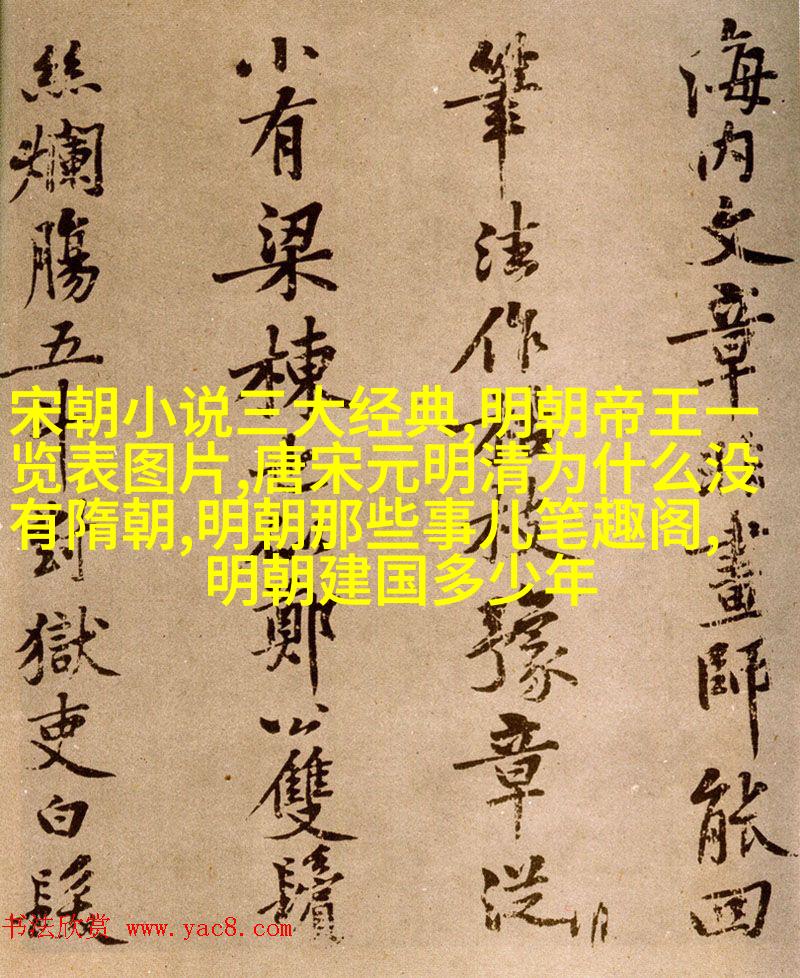 宋朝小说三大经典,明朝帝王一
览表图片,唐宋元明清为什么没
有隋朝,明朝那些事儿笔趣阁,
明朝建国多少年
海内文章畫師能回
筆法作枯枝豫章從
小有梁棟鄭公雙鬢
絲爛腸五對獄吏白髮
书法欣赏 www.yac8.com